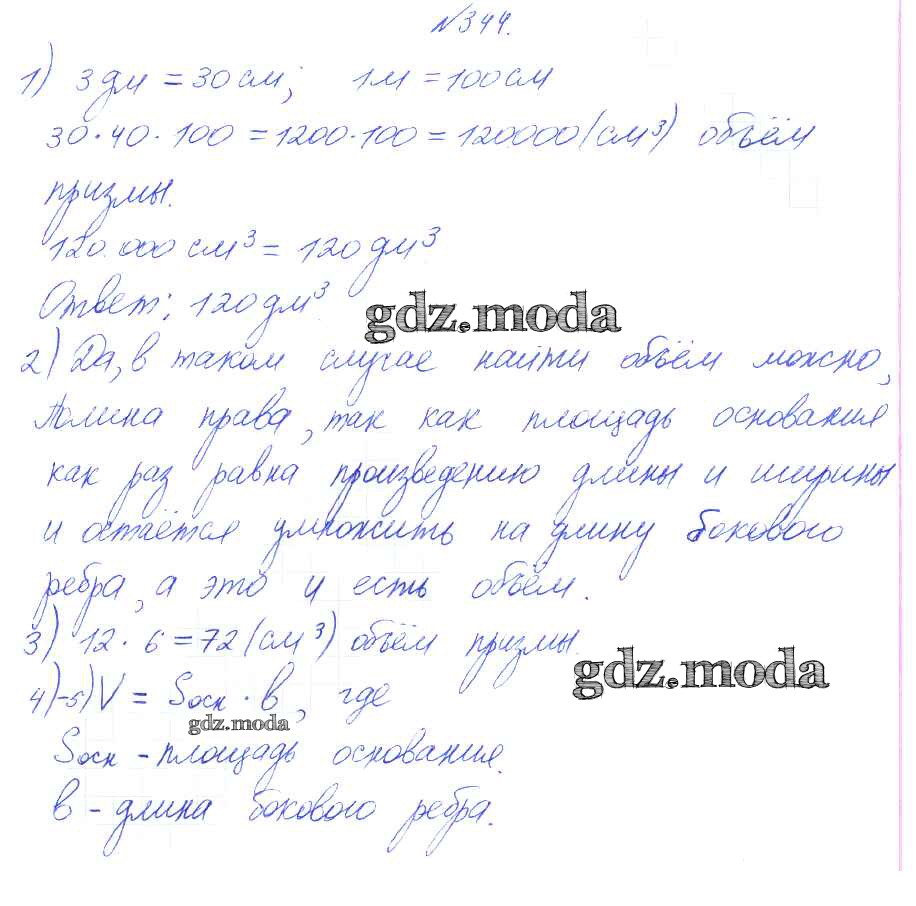 №344.
1) 3 дм = 30 см; 1 м = 100 см
30 · 40 · 100 = 1200 · 100 = 120000 (см³) объём
призмы.
120.000 см³ = 120 дм³
Ответ: 120 дм³
gdz.moda
2) Да, в таком случае найти объём можно,
Полина права, так как площадь основания
как раз равна произведению длины и ширины
и остаётся умножить на длину бокового
ребра, а это и есть объём.
3) 12 · 6 = 72 (см³) объём призмы.
gdz.moda
4)-5) V = Sосн · в, где
gdz.moda
Sосн - площадь основания.
в - длина бокового ребра.